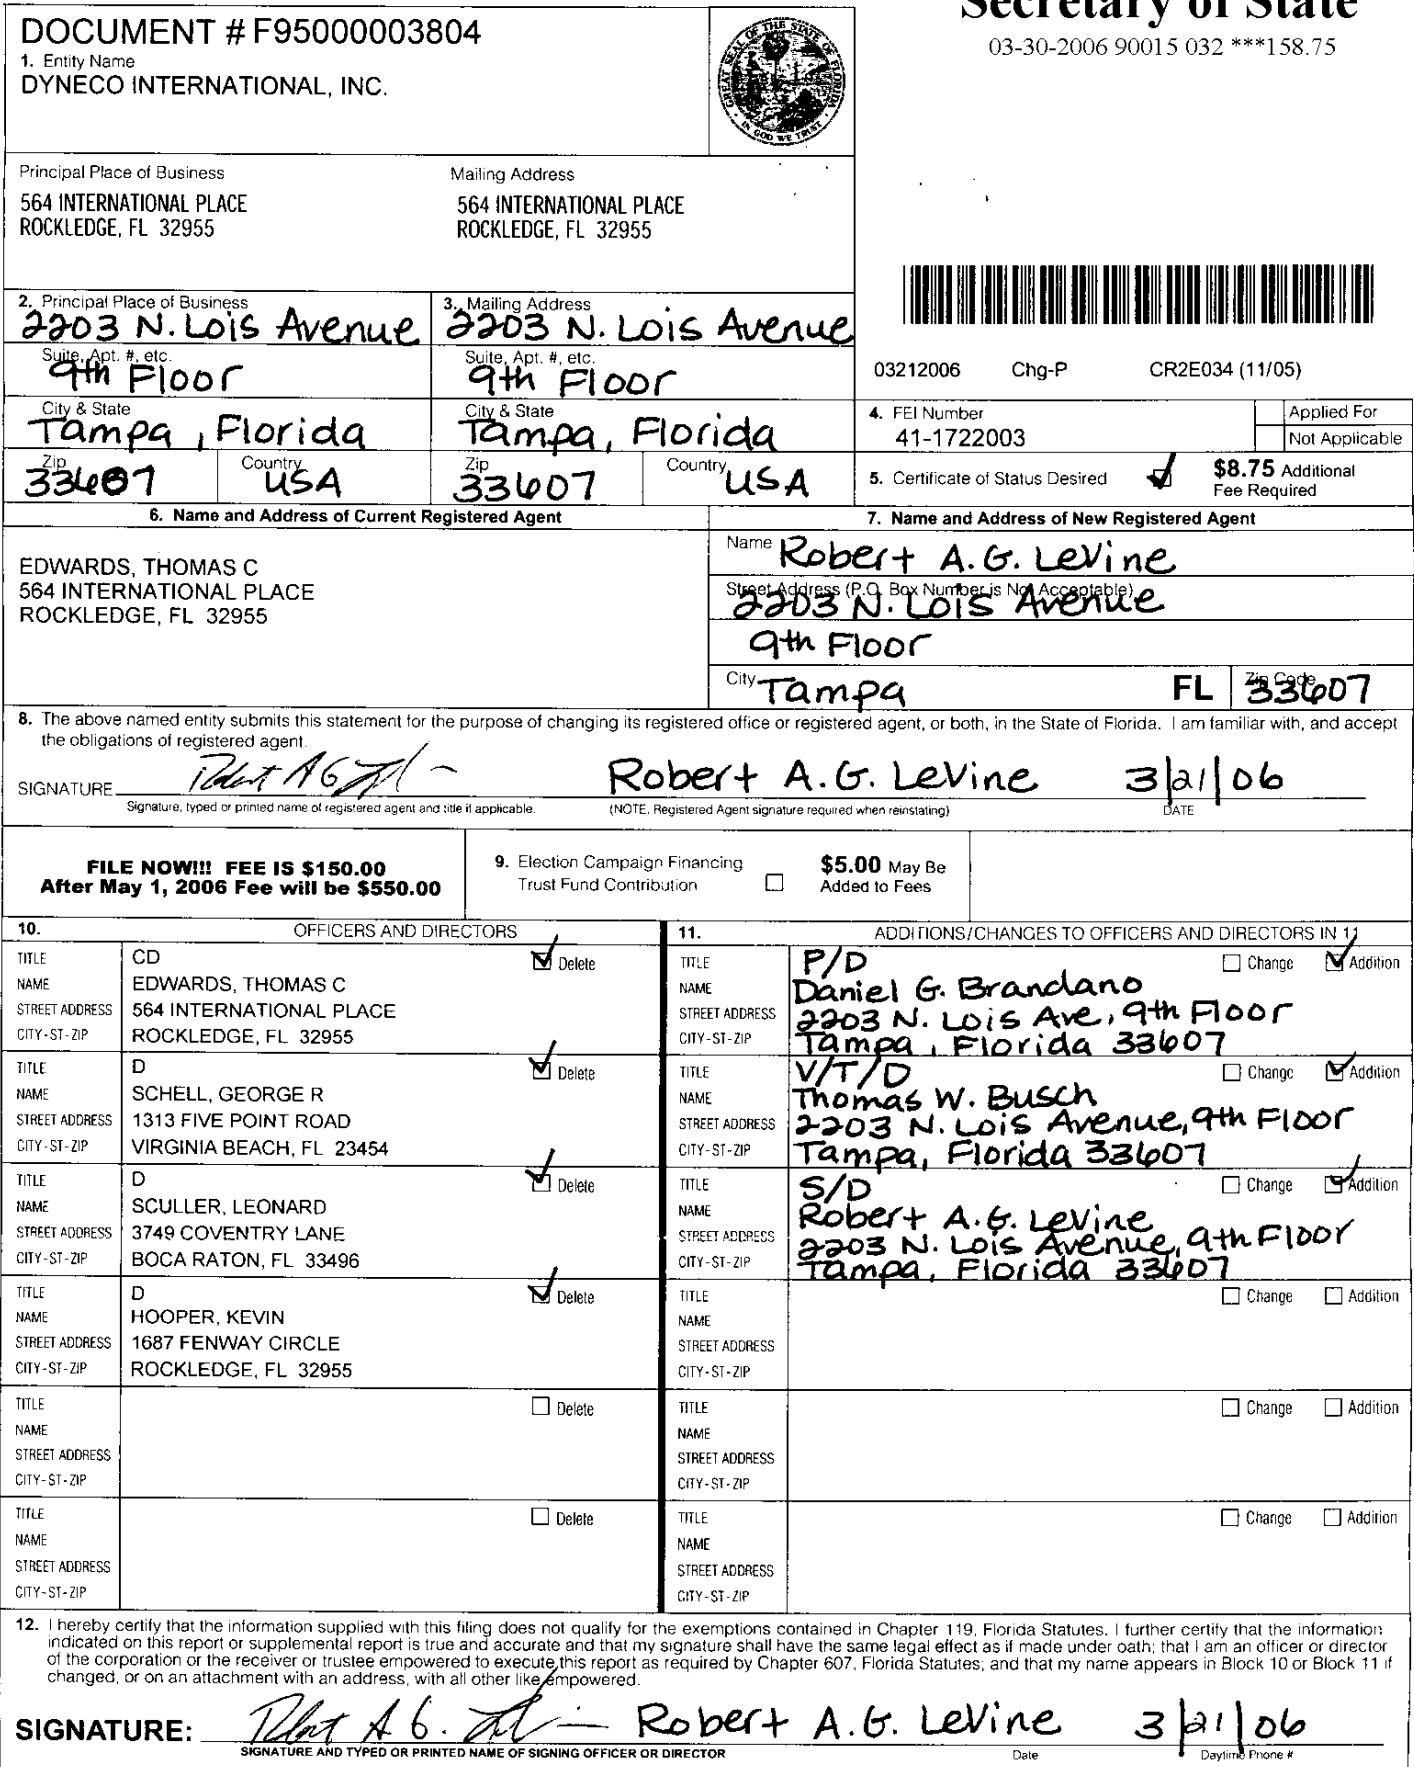 Secretary of State
03-30-2006 90015 032 ***158.75
DOCUMENT # F95000003804
1. Entity Name
DYNECO INTERNATIONAL, INC.
GREAT SEAL OF THE STATE OF FLORIDA
IN GOD WE TRUST
Principal Place of Business
564 INTERNATIONAL PLACE
ROCKLEDGE, FL 32955
Mailing Address
564 INTERNATIONAL PLACE
ROCKLEDGE, FL 32955
2. Principal Place of Business
2203 N. Lois Avenue
Suite, Apt. #, etc.
9th Floor
City & State
Tampa, Florida
Zip
33607
Country
USA
3. Mailing Address
2203 N. Lois Avenue
Suite, Apt. #, etc.
9th Floor
City & State
Tampa, Florida
Zip
33607
Country
USA
03212006 Chg-P CR2E034 (11/05)
4. FEI Number
41-1722003
Applied For
Not Applicable
5. Certificate of Status Desired
$8.75 Additional
Fee Required
6. Name and Address of Current Registered Agent
EDWARDS, THOMAS C
564 INTERNATIONAL PLACE
ROCKLEDGE, FL 32955
7. Name and Address of New Registered Agent
Name Robert A.G. LeVine
Street Address (P.O. Box Number is Not Acceptable)
2203 N. Lois Avenue
9th Floor
City Tampa FL Zip Code 33607
8. The above named entity submits this statement for the purpose of changing its registered office or registered agent, or both, in the State of Florida. I am familiar with, and accept
the obligations of registered agent.
SIGNATURE Robert A G Robert A.G. LeVine 3/21/06
Signature, typed or printed name of registered agent and title if applicable. (NOTE. Registered Agent signature required when reinstating) DATE
FILE NOW!!! FEE IS $150.00
After May 1, 2006 Fee will be $550.00
9. Election Campaign Financing
Trust Fund Contribution
$5.00 May Be
Added to Fees
10. OFFICERS AND DIRECTORS
TITLE CD Delete
NAME EDWARDS, THOMAS C
STREET ADDRESS 564 INTERNATIONAL PLACE
CITY-ST-ZIP ROCKLEDGE, FL 32955
TITLE D Delete
NAME SCHELL, GEORGE R
STREET ADDRESS 1313 FIVE POINT ROAD
CITY-ST-ZIP VIRGINIA BEACH, FL 23454
TITLE D Delete
NAME SCULLER, LEONARD
STREET ADDRESS 3749 COVENTRY LANE
CITY-ST-ZIP BOCA RATON, FL 33496
TITLE D Delete
NAME HOOPER, KEVIN
STREET ADDRESS 1687 FENWAY CIRCLE
CITY-ST-ZIP ROCKLEDGE, FL 32955
TITLE Delete
NAME
STREET ADDRESS
CITY-ST-ZIP
TITLE Delete
NAME
STREET ADDRESS
CITY-ST-ZIP
11. ADDITIONS/CHANGES TO OFFICERS AND DIRECTORS IN 11
TITLE P/D Change Addition
NAME Daniel G. Brandano
STREET ADDRESS 2203 N. Lois Ave, 9th Floor
CITY-ST-ZIP Tampa, Florida 33607
TITLE V/T/D Change Addition
NAME Thomas W. Busch
STREET ADDRESS 2203 N. Lois Avenue, 9th Floor
CITY-ST-ZIP Tampa, Florida 33607
TITLE S/D Change Addition
NAME Robert A.G. LeVine
STREET ADDRESS 2203 N. Lois Avenue, 9th Floor
CITY-ST-ZIP Tampa, Florida 33607
TITLE Change Addition
NAME
STREET ADDRESS
CITY-ST-ZIP
TITLE Change Addition
NAME
STREET ADDRESS
CITY-ST-ZIP
TITLE Change Addition
NAME
STREET ADDRESS
CITY-ST-ZIP
12. I hereby certify that the information supplied with this filing does not qualify for the exemptions contained in Chapter 119, Florida Statutes. I further certify that the information
indicated on this report or supplemental report is true and accurate and that my signature shall have the same legal effect as if made under oath; that I am an officer or director
of the corporation or the receiver or trustee empowered to execute this report as required by Chapter 607, Florida Statutes; and that my name appears in Block 10 or Block 11 if
changed, or on an attachment with an address, with all other like empowered.
SIGNATURE: Robert A G. Robert A.G. LeVine 3/21/06
SIGNATURE AND TYPED OR PRINTED NAME OF SIGNING OFFICER OR DIRECTOR Date Daytime Phone #